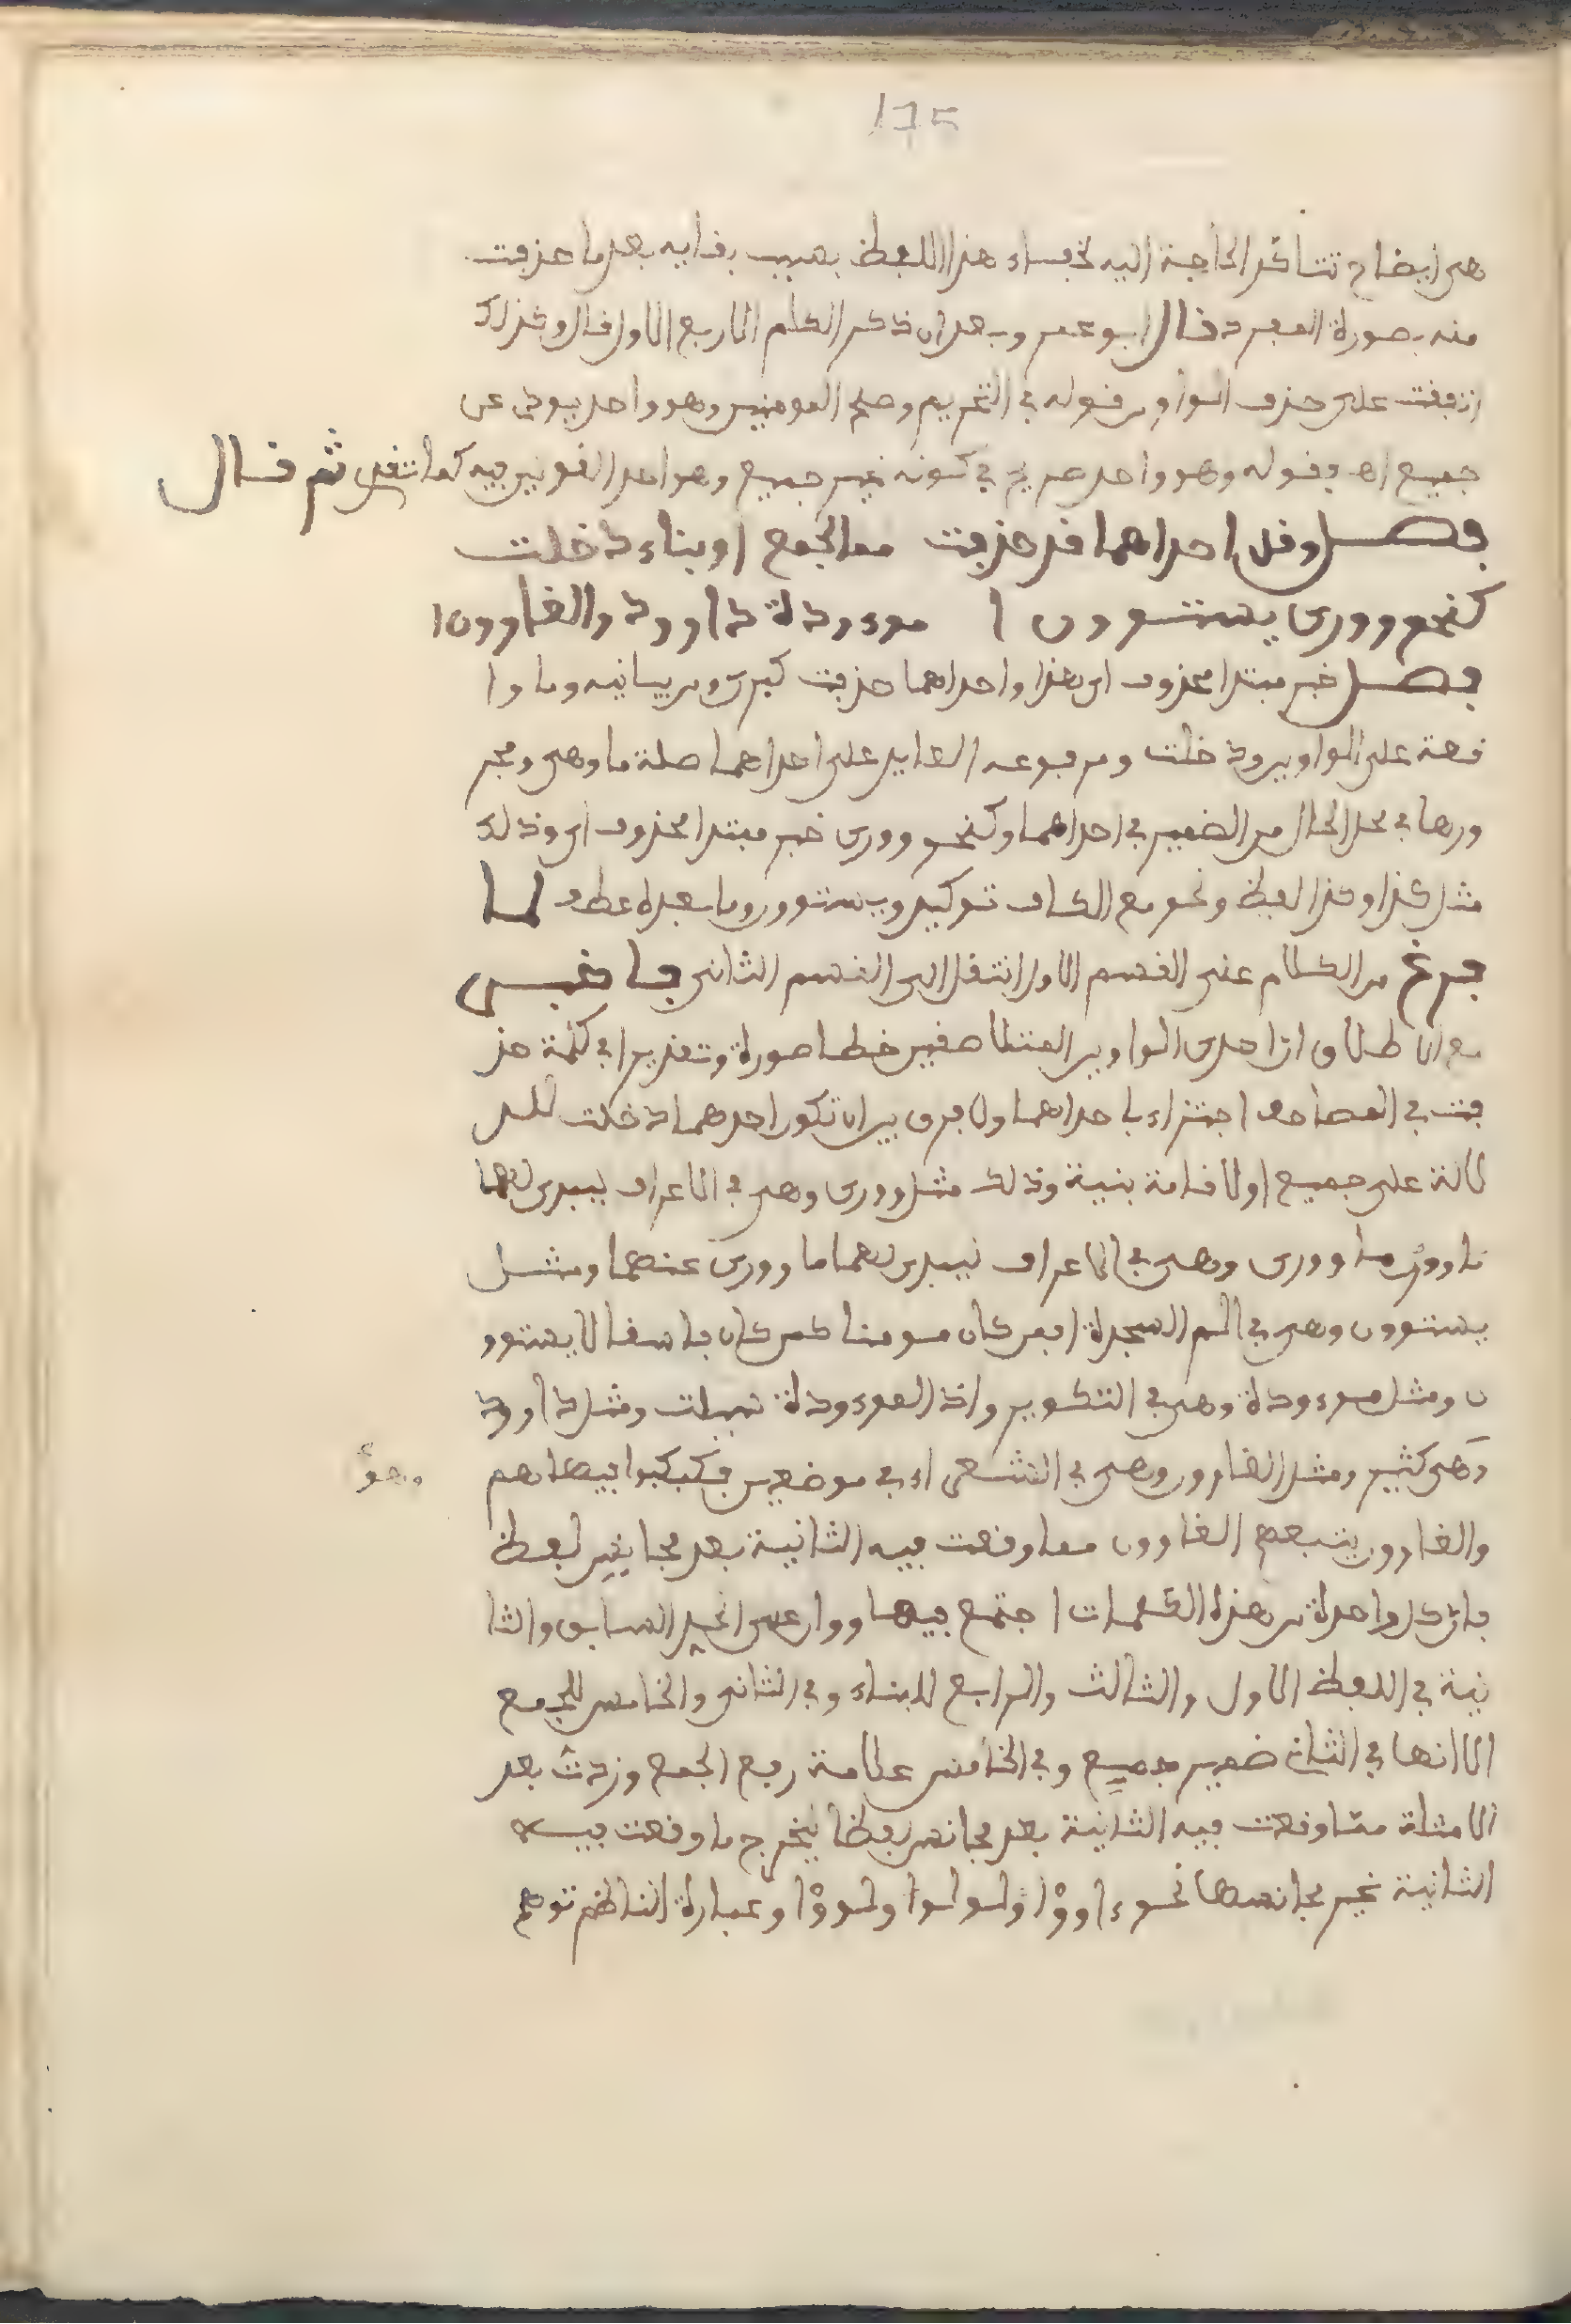 175
هى ايضاح تتاكد الحاجة اليه لخفاء هذا اللفظ بسبب بقايه بعدما حذفت
منه بصورة المفرد قال ابو عمرو بعد ان ذكر الكلم الاربع الاول قال وكذلك
اتفقت على حذف الواو من قوله فى التحريم وصلح المومنين وهو واحد يودى عن
جميع اهـ فقوله وهو واحد صريح فى كونه غير جميع وهو احد القولين فيه كما تقدم ثم قال
فصل وقل احداهما قد حذفت مما لجمع او بناء دخلت
كنحو وورى يستوون ا موءودة داوود والغاوون ا
فصل خبر مبتدا محذوف اى هذا واحداهما حذفت كبرى ومن بيانيه وما وا
قعة على الواوين ودخلت ومرفوعه العايد على احداهما صلة ما وهى ومجر
ورها فى محل الحال من الضمير فى احداهما وكنحو وورى خبر مبتدا محذوف اى وذلك
مثل كذا وكذا لفظ ونحو مع الكاف توكيد ويستوون وما بعده عطف لما
فرغ من الكلام على القسم الاول انتقل الى القسم الثانى فاخبر
مع الاطلاق ان احدى الواوين المتلاصقين خطا صورة وتقديرا فى كلمة حذ
فت فى المصاحف اجتزاء باحداهما ولا فرق بين ان تكون احدهما دخلت للد
لالة على جميع او لاقامة بنية وذلك مثل وورى وهى فى الاعراف ليبدى لهما
ما وورى وهى فى الاعراف ليبدى لهما ما وورى عنهما ومثل
يستوون وهى فى الم السجدة افمن كان مومنا كمن كان فاسقا لا يستوو
ن ومثل موءودة وهى فى التكوير واذا الموءودة سيلت ومثل داوود
وهى كثير ومثل الغاوون وهى فى الشعراء فى موضعين فكبكبوا فيها هم وهو
والغاوون يتبعهم الغاوون مما وقعت فيه الثانية بعد مجانس لفظ
فان كل واحدة من هذه الكلمات اجتمع فيها ووان على الحد السابق والثا
نية فى اللفظ الاول والثالث والرابع للبناء وفى الثانى والخامس للجمع
الا انها فى الثانى ضمير جميع وفى الخامس علامة رفع الجمع وزدت بعد
الامثلة مما وقعت فيه الثانية بعد مجانس لفظا ليخرج ما وقعت فيه
الثانية غير مجانسها نحو ءاووا ولووا وعبارة الناظم توهم